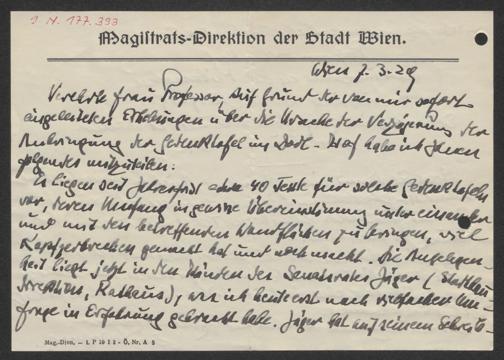 I. N. 177.393
Magistrats-Direktion der Stadt Wien.
Wien 7.3.29
Verehrte Frau Professor, Auf Grund der von mir sofort
eingeleiteten Erhebungen über die Ursache der Verzögerung der
Anbringung der Gedenktafel im habe ich Ihnen
folgendes mitzuteilen:
Es liegen seit Jahresfrist etwa 40 Texte für solche Gedenktafeln
vor, deren Umfang in gewisse Übereinstimmung untereinander
und mit den betreffenden Wandflächen zu bringen, viel
Kopfzerbrechen gemacht hat und noch macht. Die Angelegen-
heit liegt jetzt in den Händen des Senatsrates Jäger (Stadtbau-
direktion, Rathaus), was ich heute erst nach vielfachen Um-
frage in Erfahrung gebracht habe. Jäger hat auf seinem Schreib-
Mag.-Dion. — 1. P 19 1 2 - Ö. Nr. A 5